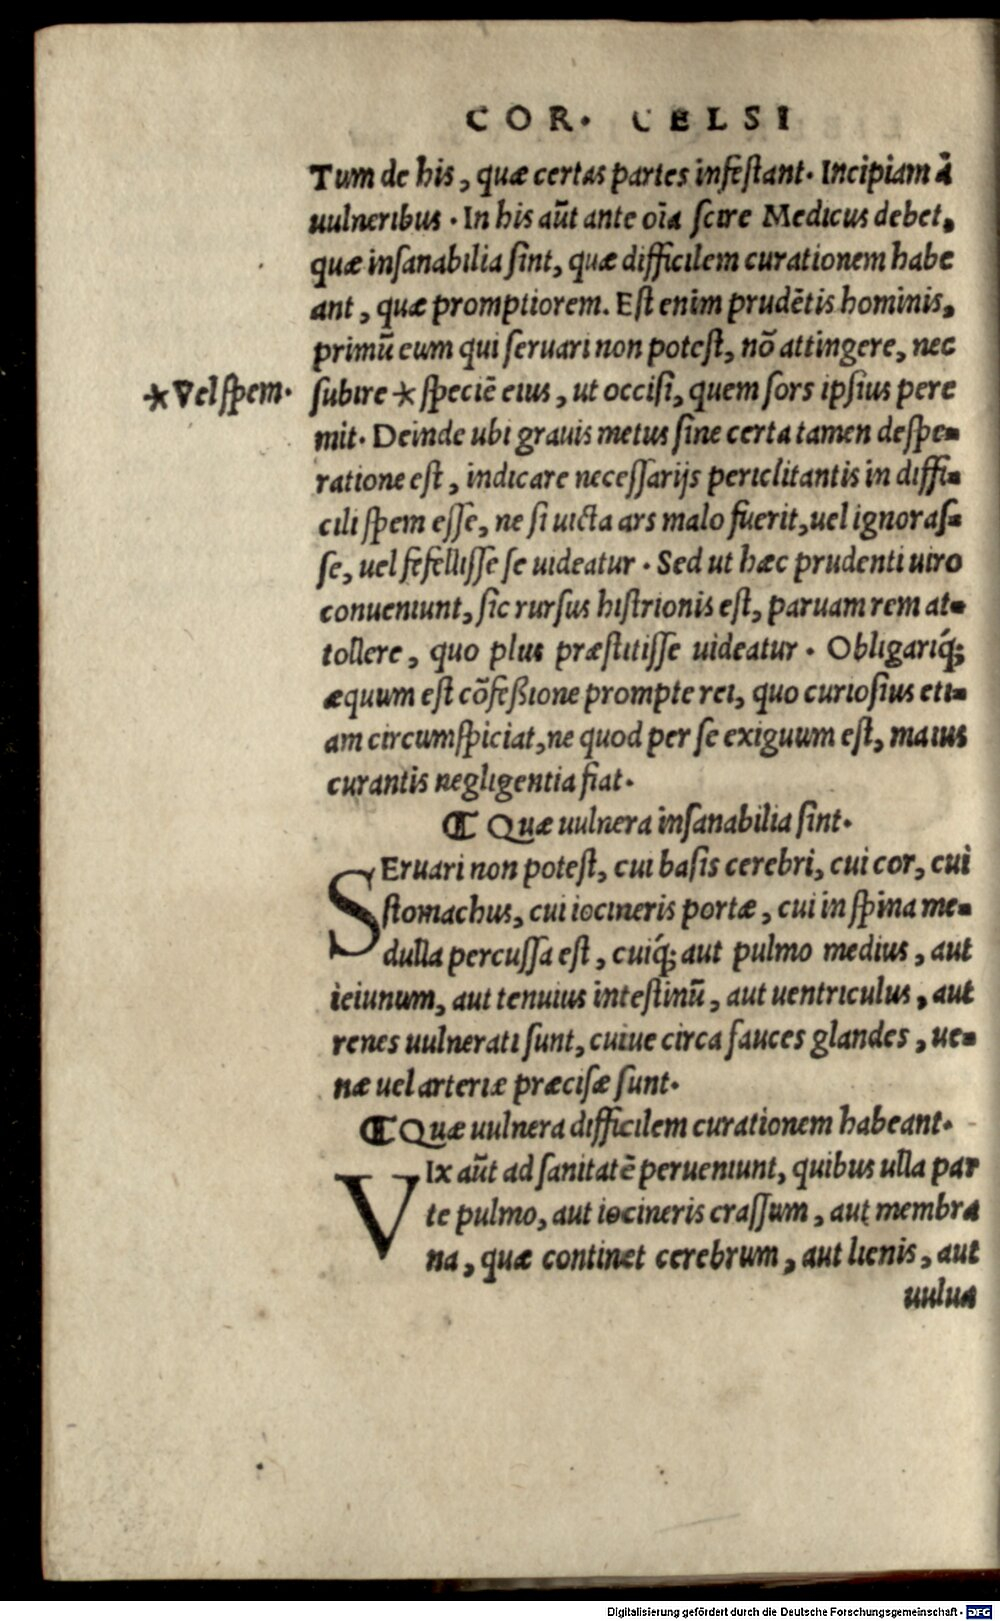 COR. CELSI
Tum de his, quæ certas partes infestant. Incipiam à
uulneribus. In his aūt ante oīa scire Medicus debet,
quæ insanabilia sint, quæ difficilem curationem habe
ant, quæ promptiorem. Est enim prudētis hominis,
primū eum qui seruari non potest, nō attingere, nec
*Vel spem.
subire * speciē eius, ut occisi, quem sors ipsius pere
mit. Deinde ubi grauis metus sine certa tamen despe-
ratione est, indicare necessarijs periclitantis in diffi-
cili spem esse, ne si uicta ars malo fuerit, uel ignoras-
se, uel fefellisse se uideatur. Sed ut hæc prudenti uiro
conueniunt, sic rursus histrionis est, paruam rem at-
tollere, quo plus præstitisse uideatur. Obligariq́;
æquum est cōfeßione prompte rei, quo curiosius eti-
am circumspiciat, ne quod per se exiguum est, maius
curantis negligentia fiat.
¶ Quæ uulnera insanabilia sint.
SEruari non potest, cui basis cerebri, cui cor, cui
stomachus, cui iocineris portæ, cui in spina me-
dulla percussa est, cuiq́; aut pulmo medius, aut
ieiunum, aut tenuius intestinū, aut uentriculus, aut
renes uulnerati sunt, cuiue circa fauces glandes, ue-
næ uel arteriæ præcisæ sunt.
¶ Quæ uulnera difficilem curationem habeant.
VIx aūt ad sanitatē perueniunt, quibus ulla par
te pulmo, aut iocineris crassum, aut membra
na, quæ continet cerebrum, aut lienis, aut
uulua
Digitalisierung gefördert durch die Deutsche Forschungsgemeinschaft - DFG